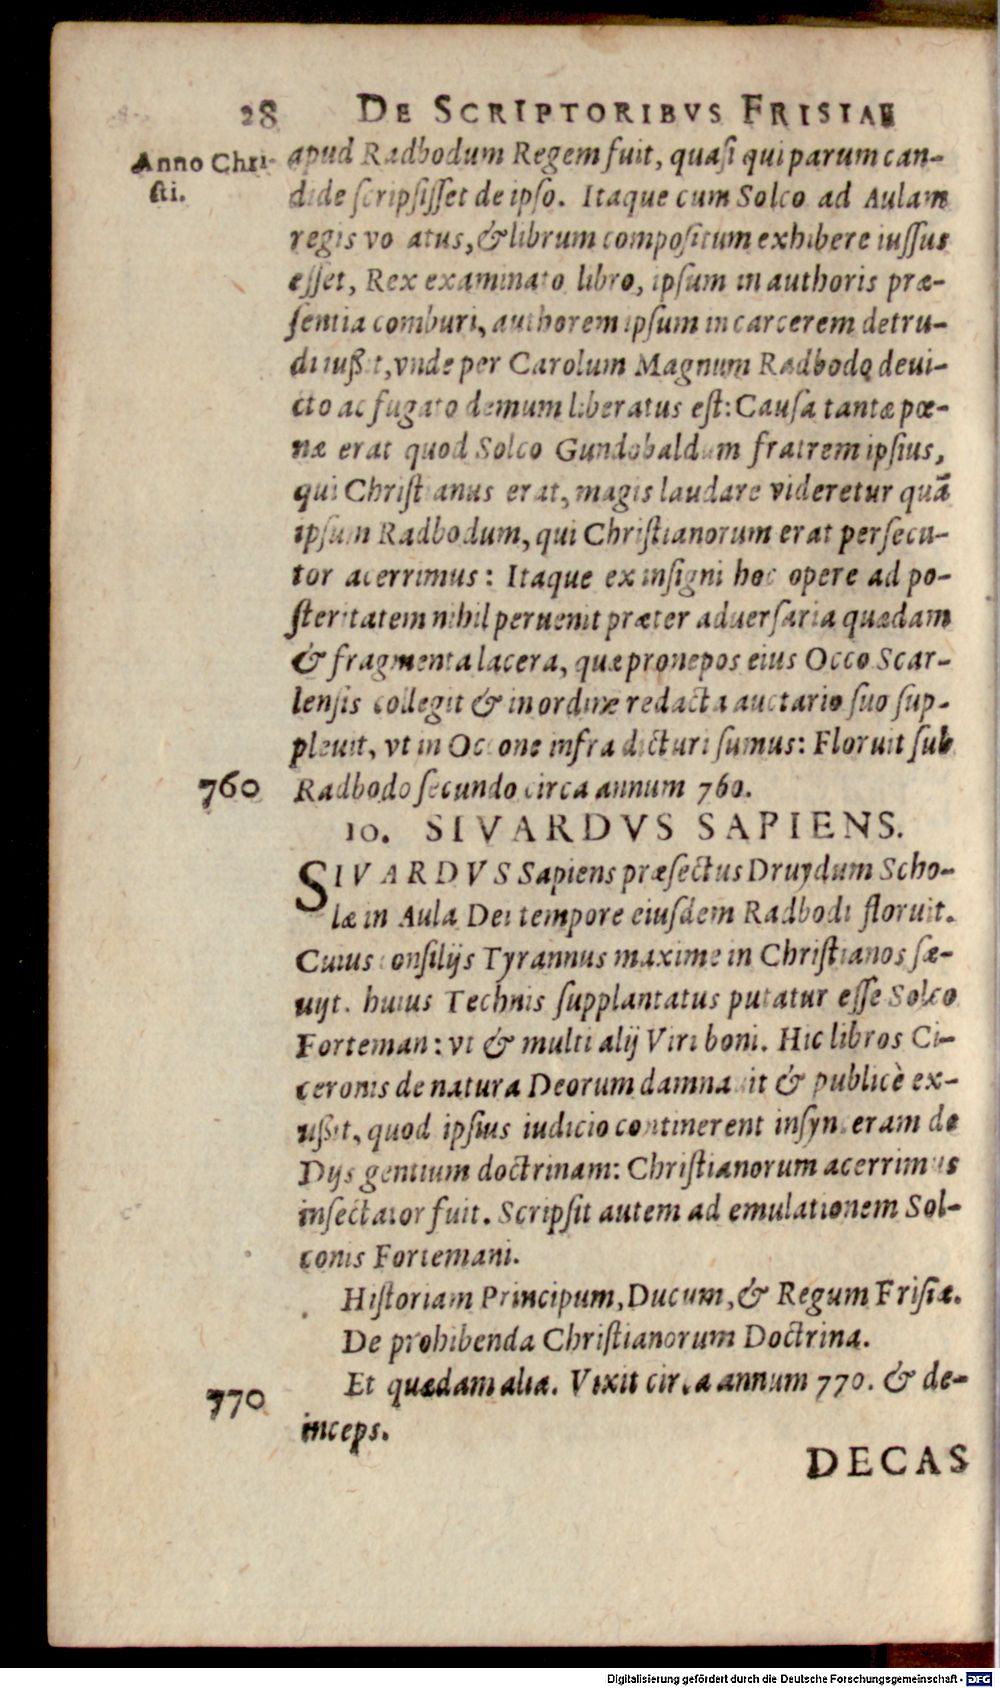 28 DE SCRIPTORIBVS FRISIAE
Anno Chri-
sti.
apud Radbodum Regem fuit, quasi qui parum can-
dide scripsisset de ipso. Itaque cum Solco ad Aulam
regis vocatus, & librum compositum exhibere iussus
esset, Rex examinato libro, ipsum in authoris præ-
sentia comburi, authorem ipsum in carcerem detru-
di iußit, vnde per Carolum Magnum Radbodo deui-
cto ac fugato demum liberatus est: Causa tantæ pœ-
næ erat quod Solco Gundobaldum fratrem ipsius,
qui Christianus erat, magis laudare videretur quā
ipsum Radbodum, qui Christianorum erat persecu-
tor acerrimus: Itaque ex insigni hoc opere ad po-
steritatem nihil peruenit præter aduersaria quædam
& fragmenta lacera, quæ pronepos eius Occo Scar-
lensis collegit & in ordinē redacta auctario suo sup-
pleuit, vt in Occone infra dicturi sumus: Floruit sub
760 Radbodo secundo circa annum 760.
10. SIVARDVS SAPIENS.
SIVARDVS Sapiens præfectus Druydum Scho-
læ in Aula Dei tempore eiusdem Radbodi floruit.
Cuius consilijs Tyrannus maxime in Christianos sæ-
uijt. huius Technis supplantatus putatur esse Solco
Forteman: vt & multi alij Viri boni. Hic libros Ci-
ceronis de natura Deorum damnauit & publicè ex-
ußit, quod ipsius iudicio continerent insynceram de
Dijs gentium doctrinam: Christianorum acerrimus
insectator fuit. Scripsit autem ad emulationem Sol-
conis Fortemani.
Historiam Principum, Ducum, & Regum Frisiæ.
De prohibenda Christianorum Doctrina.
770 Et quædam alia. Vixit circa annum 770. & de-
inceps.
DECAS
Digitalisierung gefördert durch die Deutsche Forschungsgemeinschaft - DFG